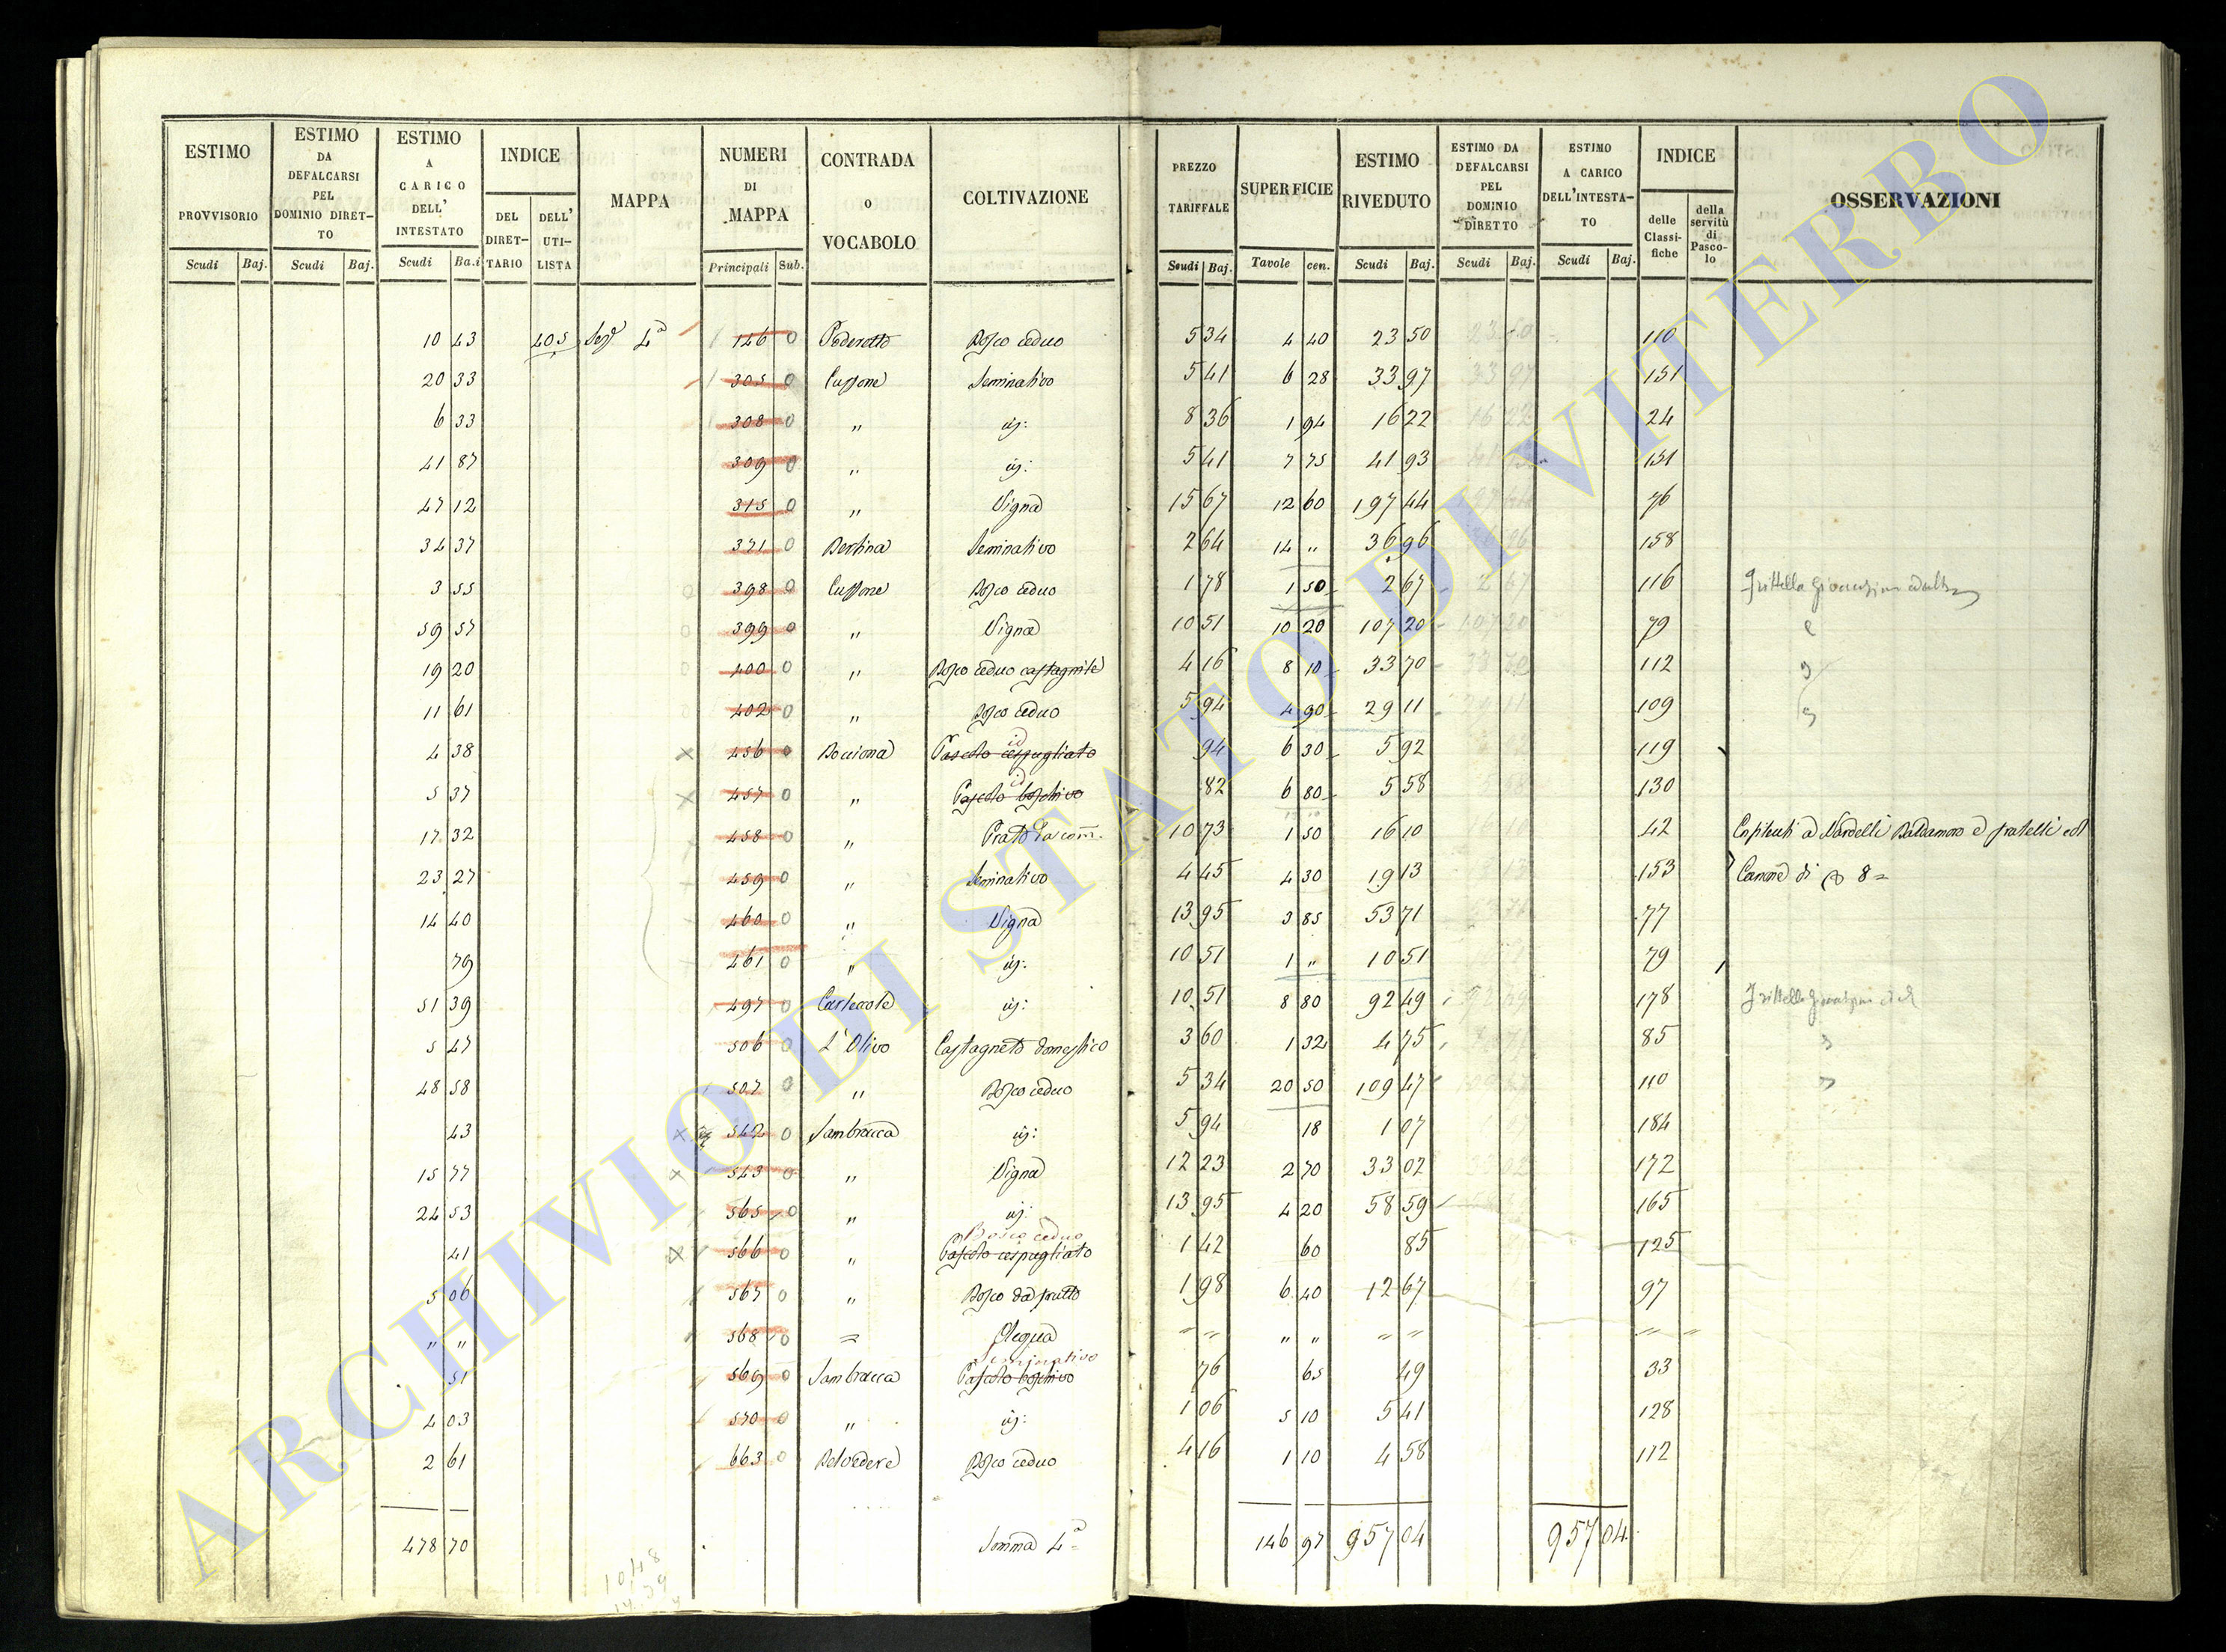 ESTIMO PROVVISORIO Scudi Baj.
ESTIMO DA DEFALCARSI PEL DOMINIO DIRET-TO Scudi Baj.
ESTIMO A CARICO DELL' INTESTATO Scudi Ba.i
INDICE DEL DIRET-TARIO DELL' UTI-LISTA
MAPPA
NUMERI DI MAPPA Principali Sub.
CONTRADA O VOCABOLO
COLTIVAZIONE
PREZZO TARIFFALE Scudi Baj.
SUPERFICIE Tavole cen.
ESTIMO RIVEDUTO Scudi Baj.
ESTIMO DA DEFALCARSI PEL DOMINIO DIRETTO Scudi Baj.
ESTIMO A CARICO DELL'INTESTA-TO Scudi Baj.
INDICE delle Classi-fiche della servitù di Pasco-lo
OSSERVAZIONI
10 43 405 Sez 4a 146 0 Poderetto Bosco ceduo 5 34 4 40 23 50 110
20 33 305 0 Cuffone Seminativo 5 41 6 28 33 97 151
6 33 308 0 " id: 8 36 1 94 16 22 24
41 87 309 0 " id: 5 41 7 75 41 93 151
47 12 315 0 " Vigna 15 67 12 60 197 44 76
34 37 321 0 Seminativo 2 64 14 " 36 96 158
3 55 398 0 Cuffone Bosco ceduo 1 78 1 50 2 67 116
59 57 399 0 " Vigna 10 51 10 20 107 20 79
19 20 400 0 " Bosco ceduo castagnile 4 16 8 10 33 70 112
11 61 402 0 " Bosco ceduo 5 94 4 90 29 11 109
4 38 456 0 Bocciona Pascolo cespugliato id 94 6 30 5 92 119
5 37 457 0 " Pascolo boschivo id 82 6 80 5 58 130
17 32 458 0 " Prato 10 73 1 50 16 10 42 a Nardelli Baldamoro e fratelli col
23 27 459 0 " Seminativo 4 45 4 30 19 13 153 Canone di 8 =
14 40 460 0 " Vigna 13 95 3 85 53 71 77
79 461 0 " id: 10 51 1 " 10 51 79
51 39 497 0 id: 10 51 8 80 92 49 178
5 47 506 0 L'Olivo Castagneto domestico 3 60 1 32 4 75 85
48 58 507 0 " Bosco ceduo 5 34 20 50 109 47 110
43 542 0 Sambracca id: 5 94 18 1 07 184
15 77 543 0 " Vigna 12 23 2 70 33 02 172
24 53 565 0 " id: 13 95 4 20 58 59 165
41 566 0 " Pascolo cespugliato Bosco ceduo 1 42 60 85 125
5 06 567 0 " Bosco da frutto 1 98 6 40 12 67 97
" " 568 0 = Acqua " " " " " " " "
51 569 0 Sambracca Pascolo boschivo Seminativo 76 65 49 33
4 03 570 0 " id: 1 06 5 10 5 41 128
2 61 663 0 Belvedere Bosco ceduo 4 16 1 10 4 58 112
478 70 Somma 4a 146 97 957 04 957 04
ARCHIVIO DI STATO DI VITERBO